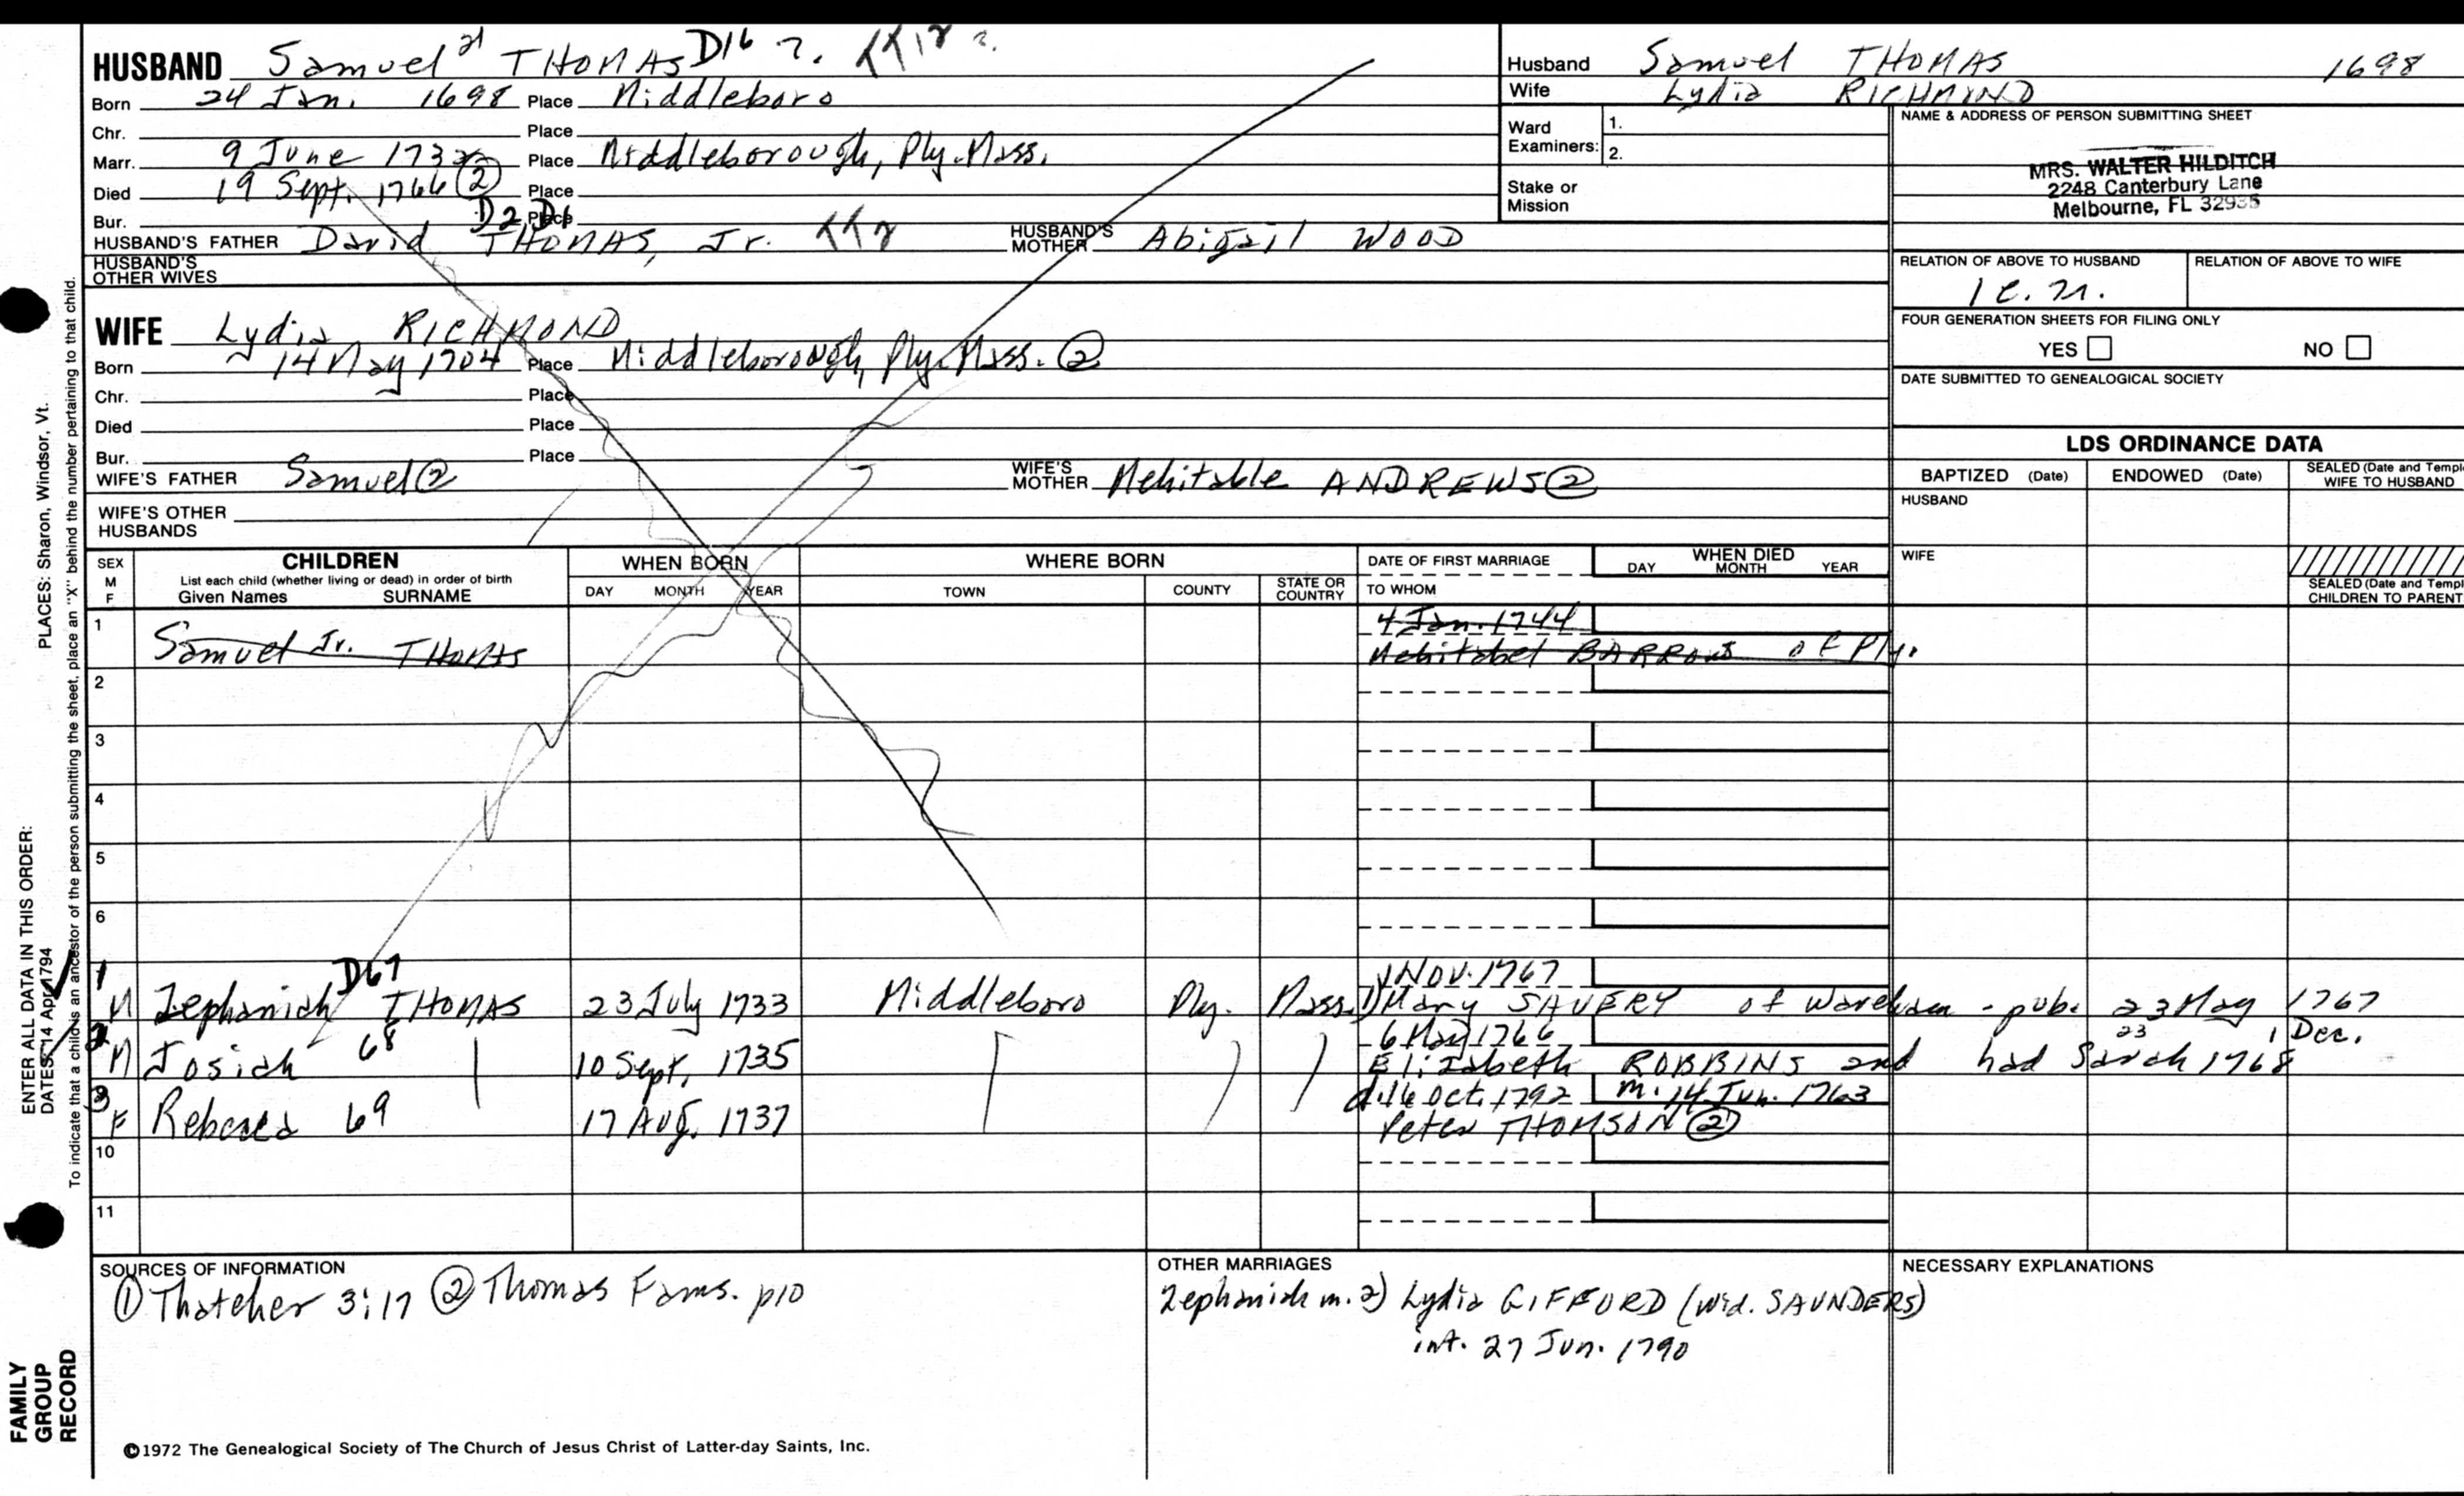 HUSBAND Samuel 21 THOMAS D16 ?.
Born 24 Jan. 1698 Place Middleboro
Chr. Place
Marr. 9 June 1732 Place Middleborough, Ply. Mass.
Died 19 Sept. 1766 ② Place
Bur. Place
D2 D1
HUSBAND'S FATHER David THOMAS, Jr. HUSBAND'S MOTHER Abigail WOOD
HUSBAND'S OTHER WIVES
WIFE Lydia RICHMOND
Born 14 May 1704 Place Middleborough, Ply. Mass. ②
Chr. Place
Died Place
Bur. Place
WIFE'S FATHER Samuel ② WIFE'S MOTHER Mehitable ANDREWS ②
WIFE'S OTHER HUSBANDS
Husband Samuel THOMAS 1698
Wife Lydia RICHMOND
Ward Examiners: 1.
2.
Stake or Mission
NAME & ADDRESS OF PERSON SUBMITTING SHEET
MRS. WALTER HILDITCH
2248 Canterbury Lane
Melbourne, FL 32935
RELATION OF ABOVE TO HUSBAND RELATION OF ABOVE TO WIFE
FOUR GENERATION SHEETS FOR FILING ONLY
YES NO
DATE SUBMITTED TO GENEALOGICAL SOCIETY
LDS ORDINANCE DATA
BAPTIZED (Date) ENDOWED (Date) SEALED (Date and Templ
WIFE TO HUSBAND
HUSBAND
WIFE
SEALED (Date and Templ
CHILDREN TO PARENT
SEX M F
CHILDREN
List each child (whether living or dead) in order of birth
Given Names SURNAME
WHEN BORN
DAY MONTH YEAR
WHERE BORN
TOWN COUNTY STATE OR COUNTRY
DATE OF FIRST MARRIAGE
TO WHOM
WHEN DIED
DAY MONTH YEAR
1 Samuel Jr. THOMAS 4 Jan. 1744
Mehitabel BARROWS of Ply.
2
3
4
5
6
1 D67 1 Nov. 1767
M Zephaniah THOMAS 23 July 1733 Middleboro Ply. Mass. 1) Mary SAVERY of Wareham - pub. 23 May 1767
2 68 6 May 1766 23 1 Dec.
M Josiah 10 Sept. 1735 Elizabeth ROBBINS and had Sarah 1768
3 69 d. 16 Oct. 1792 m. 14 Jun. 1763
F Rebecca 17 Aug. 1737 Peter THOMSON ②
10
11
SOURCES OF INFORMATION
① Thatcher 3:17 ② Thomas Fams. p10
OTHER MARRIAGES
Zephaniah m. 2) Lydia GIFFORD (wid. SAUNDERS)
int. 27 Jun. 1790
NECESSARY EXPLANATIONS
©1972 The Genealogical Society of The Church of Jesus Christ of Latter-day Saints, Inc.
ENTER ALL DATA IN THIS ORDER:
DATES: 14 Apr 1794 PLACES: Sharon, Windsor, Vt.
To indicate that a child is an ancestor of the person submitting the sheet, place an "X" behind the number pertaining to that child.
FAMILY
GROUP
RECORD